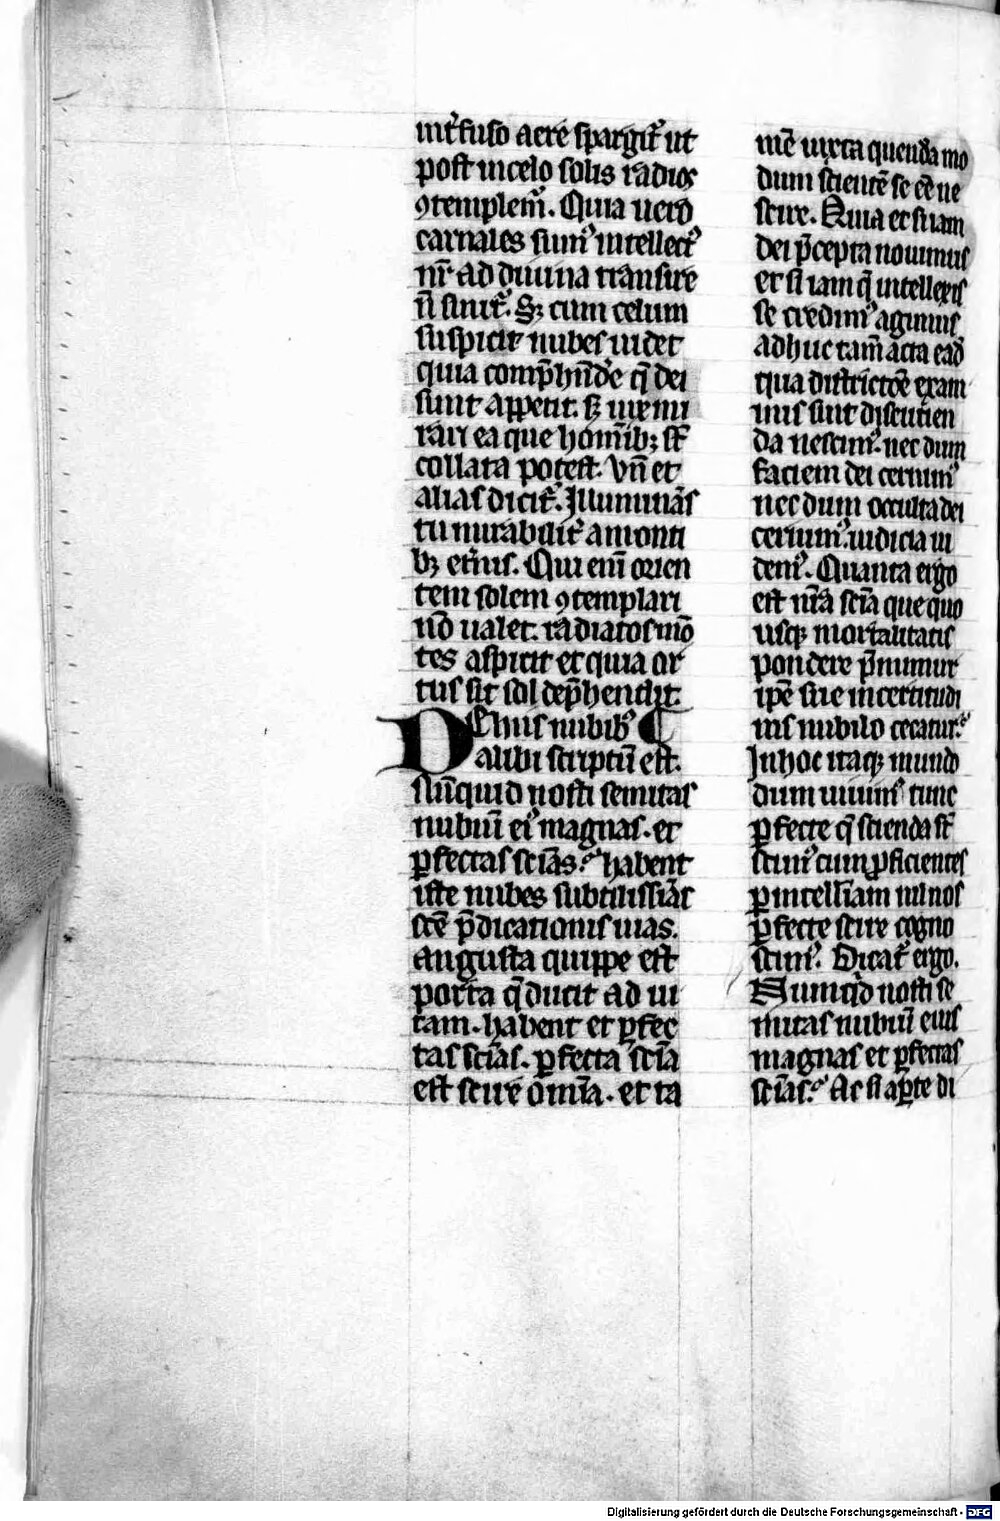 int̉fuso aere spargit᷑ ut
post in celo solis radios
ꝯtemplem᷑. Quia uero
carnales sumꝰ intellectꝰ
nr̄ ad diuina transire
n̄ sinit᷑. Sꝫ cum celum
suspicit nubes uidet
quia comp̄hn̄de᷑ q̄ dei
sunt appetit. sꝫ uix mi
rari ea que homīibꝫ sr̄
collata potest. Vn̄ et
alias dicit᷑. Illuminās
tu mirabilit᷑ a monti
bꝫ et̉nis. Qui em̄ orien
tem solem ꝯtemplari
nō ualet. radiatos mō
tes aspicit et quia or
tus sit sol dep̄hendit.
De hiis nubibꝰ
alibi scriptū est.
Nūquid nosti semitas
nubiū eiꝰ magnas. et
ꝑfectas sciās. habent
iste nubes subtilissiās
scē p̄dicationis uias.
angusta quippe est
porta q̄ ducit ad ui
tam. habent et ꝑfec
tas sciās. ꝑfecta sciā
est scire om̄ia. et ta
mē iuxta quendā mo
dum sciente᷑ se eē ne
scire. Quia et si iam
dei p̄cepta nouimus
et si iam q̄ intellexis
se credimꝰ agimus
adhuc tam̄ acta eadē
qua districtōe exam
inis sint discutien
da nescimꝰ. nec dum
faciem dei cernimꝰ
nec dum occulta dei
cernimꝰ. iudicia ui
demꝰ. Quanta ergo
est nr̄a sciā que quo
usqꝫ mortalitatis
pondere p̄mimur
ip̄e sue incertitudi
nis nubilo cecatur.
In hoc itaqꝫ mundo
dum uiuimꝰ tunc
ꝑfecte q̄ scienda sr̄
scimꝰ cum ꝓficientes
ꝑ intellign̄iam nil nos
ꝑfecte scire cogno
scimꝰ. Dicat᷑ ergo.
Numqͥd nosti se
mitas nubiū eius
magnas et ꝑfectas
sciās. Ac si aꝑte di
Digitalisierung gefördert durch die Deutsche Forschungsgemeinschaft - DFG